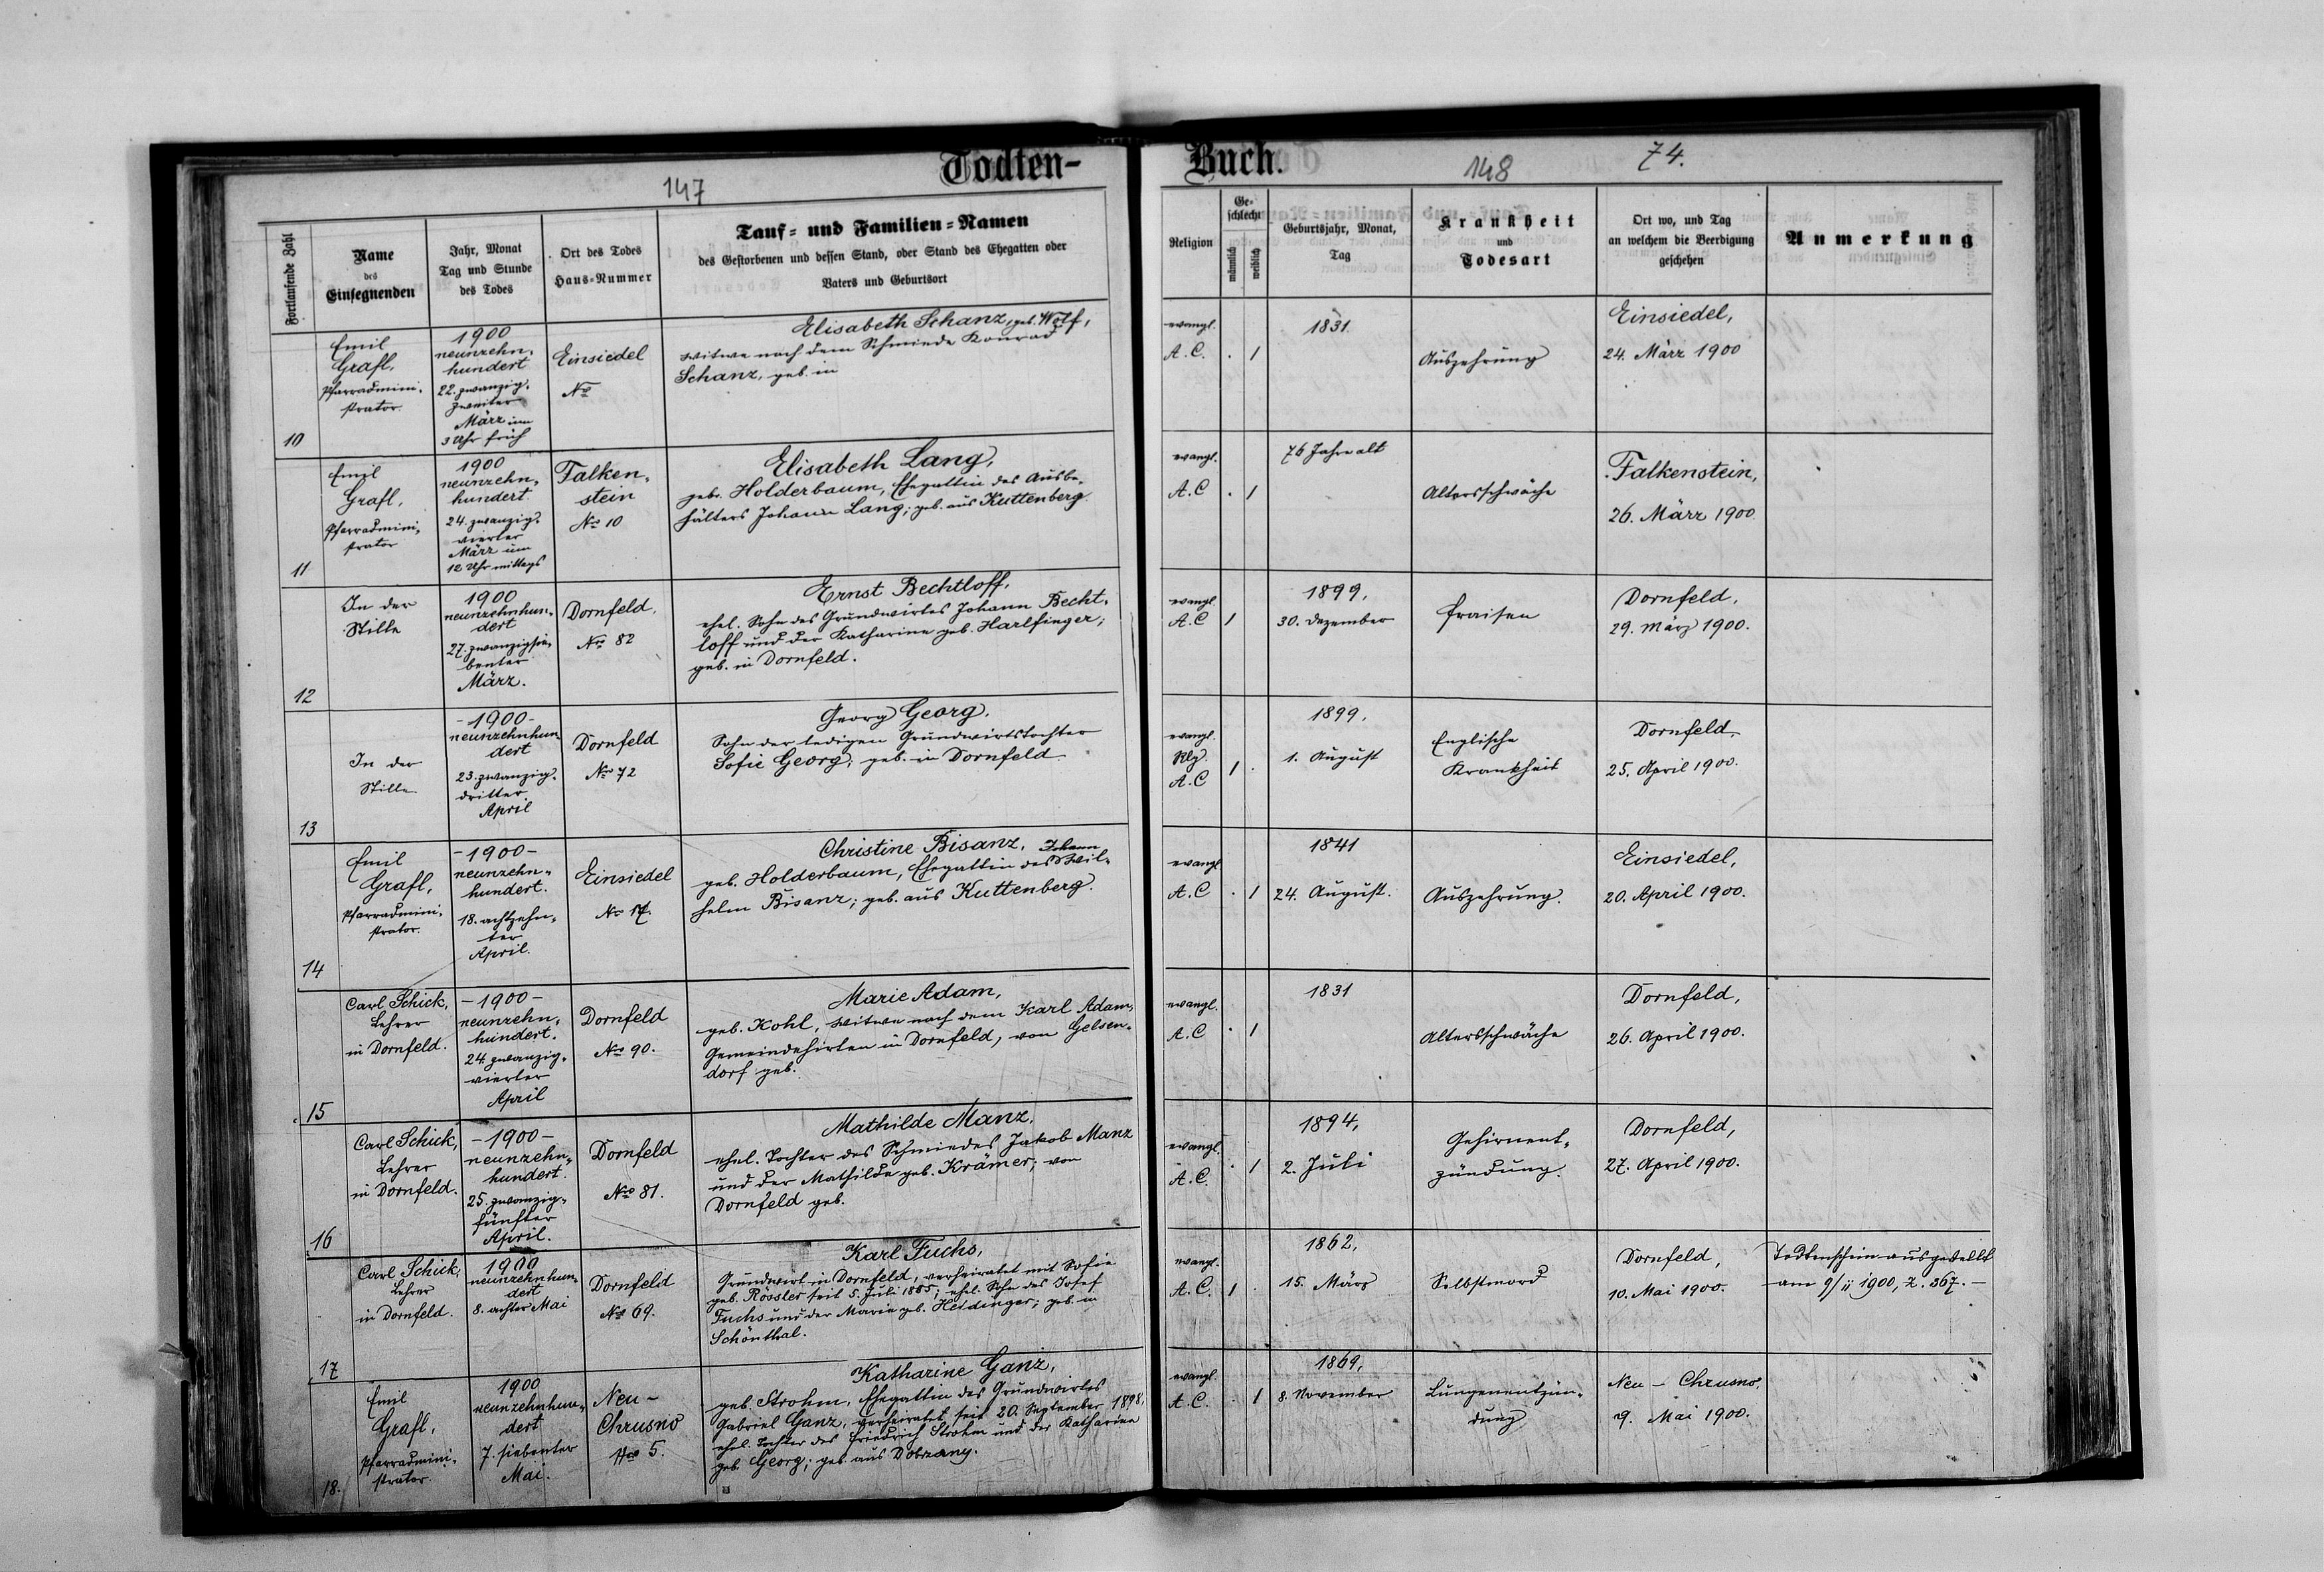 Todten-
147
Fortlaufende Zahl
Name
des
Einsegnenden
Jahr, Monat
Tag und Stunde
des Todes
Ort des Todes
Haus-Nummer
Tauf- und Familien-Namen
des Gestorbenen und dessen Stand, oder Stand des Ehegatten oder
Vaters und Geburtsort
10
Emil
Grafl,
Pfarradmini-
strator.
1900
neunzehn-
hundert
22. zwanzig-
zweiter
März um
3 Uhr früh
Einsiedel
No
Elisabeth Schanz, geb. Wolf,
Witwe nach dem Schmiede Konrad
Schanz, geb. in
11
Emil
Grafl,
Pfarradmini-
strator
1900
neunzehn-
hundert
24. zwanzig-
vierter
März um
12 Uhr mittags
Falken-
stein
No 10
Elisabeth Lang,
geb. Holderbaum, Ehegattin des Ausbe-
hälters Johann Lang; geb. aus Kuttenberg
12
In der
Stille
1900
neunzehnhun-
dert
27. zwanzigsie-
benter
März.
Dornfeld,
No 82
Ernst Bechtloff,
ehel. Sohn des Grundwirtes Johann Becht-
loff und der Katharina geb. Harlfinger;
geb. in Dornfeld.
13
In der
Stille
-1900-
neunzehnhun-
dert
23. zwanzig-
dritter
April
Dornfeld
No 72
Georg Georg,
Sohn der ledigen Grundwirtstochter
Sofie Georg; geb. in Dornfeld
14
Emil
Grafl,
Pfarradmini-
strator.
-1900-
neunzehn-
hundert.
18. achtzehn-
ter
April.
Einsiedel
No 14.
Christine Bisanz, Johann
geb. Holderbaum, Ehegattin des Wil-
helm Bisanz; geb. aus Kuttenberg.
15
Carl Schick,
Lehrer
in Dornfeld.
-1900-
neunzehn-
hundert.
24. zwanzig-
vierter
April
Dornfeld
No 90.
Marie Adam,
geb. Kohl, Witwe nach dem Karl Adam,
Gemeindehirten in Dornfeld, von Gelsen-
dorf geb.
16
Carl Schick,
Lehrer
in Dornfeld.
-1900-
neunzehn-
hundert.
25. zwanzig-
fünfter
April.
Dornfeld
No 81.
Mathilde Manz,
ehel. Tochter des Schmiedes Jakob Manz
und der Mathilde geb. Krämer; von
Dornfeld geb.
17
Carl Schick,
Lehrer
in Dornfeld.
1900
neunzehnhun-
dert
8. achter Mai
Dornfeld
No 69.
Karl Fuchs,
Grundwirt in Dornfeld, verheiratet mit Sofie
geb. Rössler seit 5. Juli 1885; ehel. Sohn des Josef
Fuchs und der Marie geb. Heidinger; geb. in
Schönthal.
18.
Emil
Grafl,
Pfarradmini-
strator.
1900
neunzehnhun-
dert
7. siebenter
Mai.
Neu-
Chrusno
No 5.
Katharine Ganz,
geb. Strohm, Ehegattin des Grundwirtes
Gabriel Ganz, verheiratet seit 20. September 1898,
ehel. Tochter des Friedrich Strohm und der Katharina
geb. Georg; geb. aus Dobrzany.
Buch.
148
74.
Religion
Ge-
schlecht
männlich
weiblich
Geburtsjahr, Monat,
Tag
Krankheit
und
Todesart
Ort wo, und Tag
an welchem die Beerdigung
geschehen
Anmerkung
evangl.
A. C.
. 1
1831
Auszehrung
Einsiedel,
24. März 1900
evangl.
A. C
. 1
76 Jahre alt
Altersschwäche
Falkenstein,
26. März 1900.
evangl
A. C
1
1899,
30. Dezember
Fraisen
Dornfeld,
29. März 1900.
evangl.
A. C
1 .
1899,
1. August
Englische
Krankheit
Dornfeld,
25. April 1900.
evangl
A. C
. 1
1841
24. August.
Auszehrung.
Einsiedel,
20. April 1900.
evangl.
A. C
. 1
1831
Altersschwäche
Dornfeld,
26. April 1900.
evangl.
A. C.
. 1
1894,
2. Juli
Gehirnent-
zündung.
Dornfeld,
27. April 1900.
evangl.
A. C.
1 .
1862,
15. März
Selbstmord
Dornfeld,
10. Mai 1900.
Todtenschein ausgestellt
am 9/ii 1900, Z. 367. -
evangl.
A. C.
. 1
1869,
8. November
Lungenentzün-
dung
Neu-Chrusno,
9. Mai 1900.